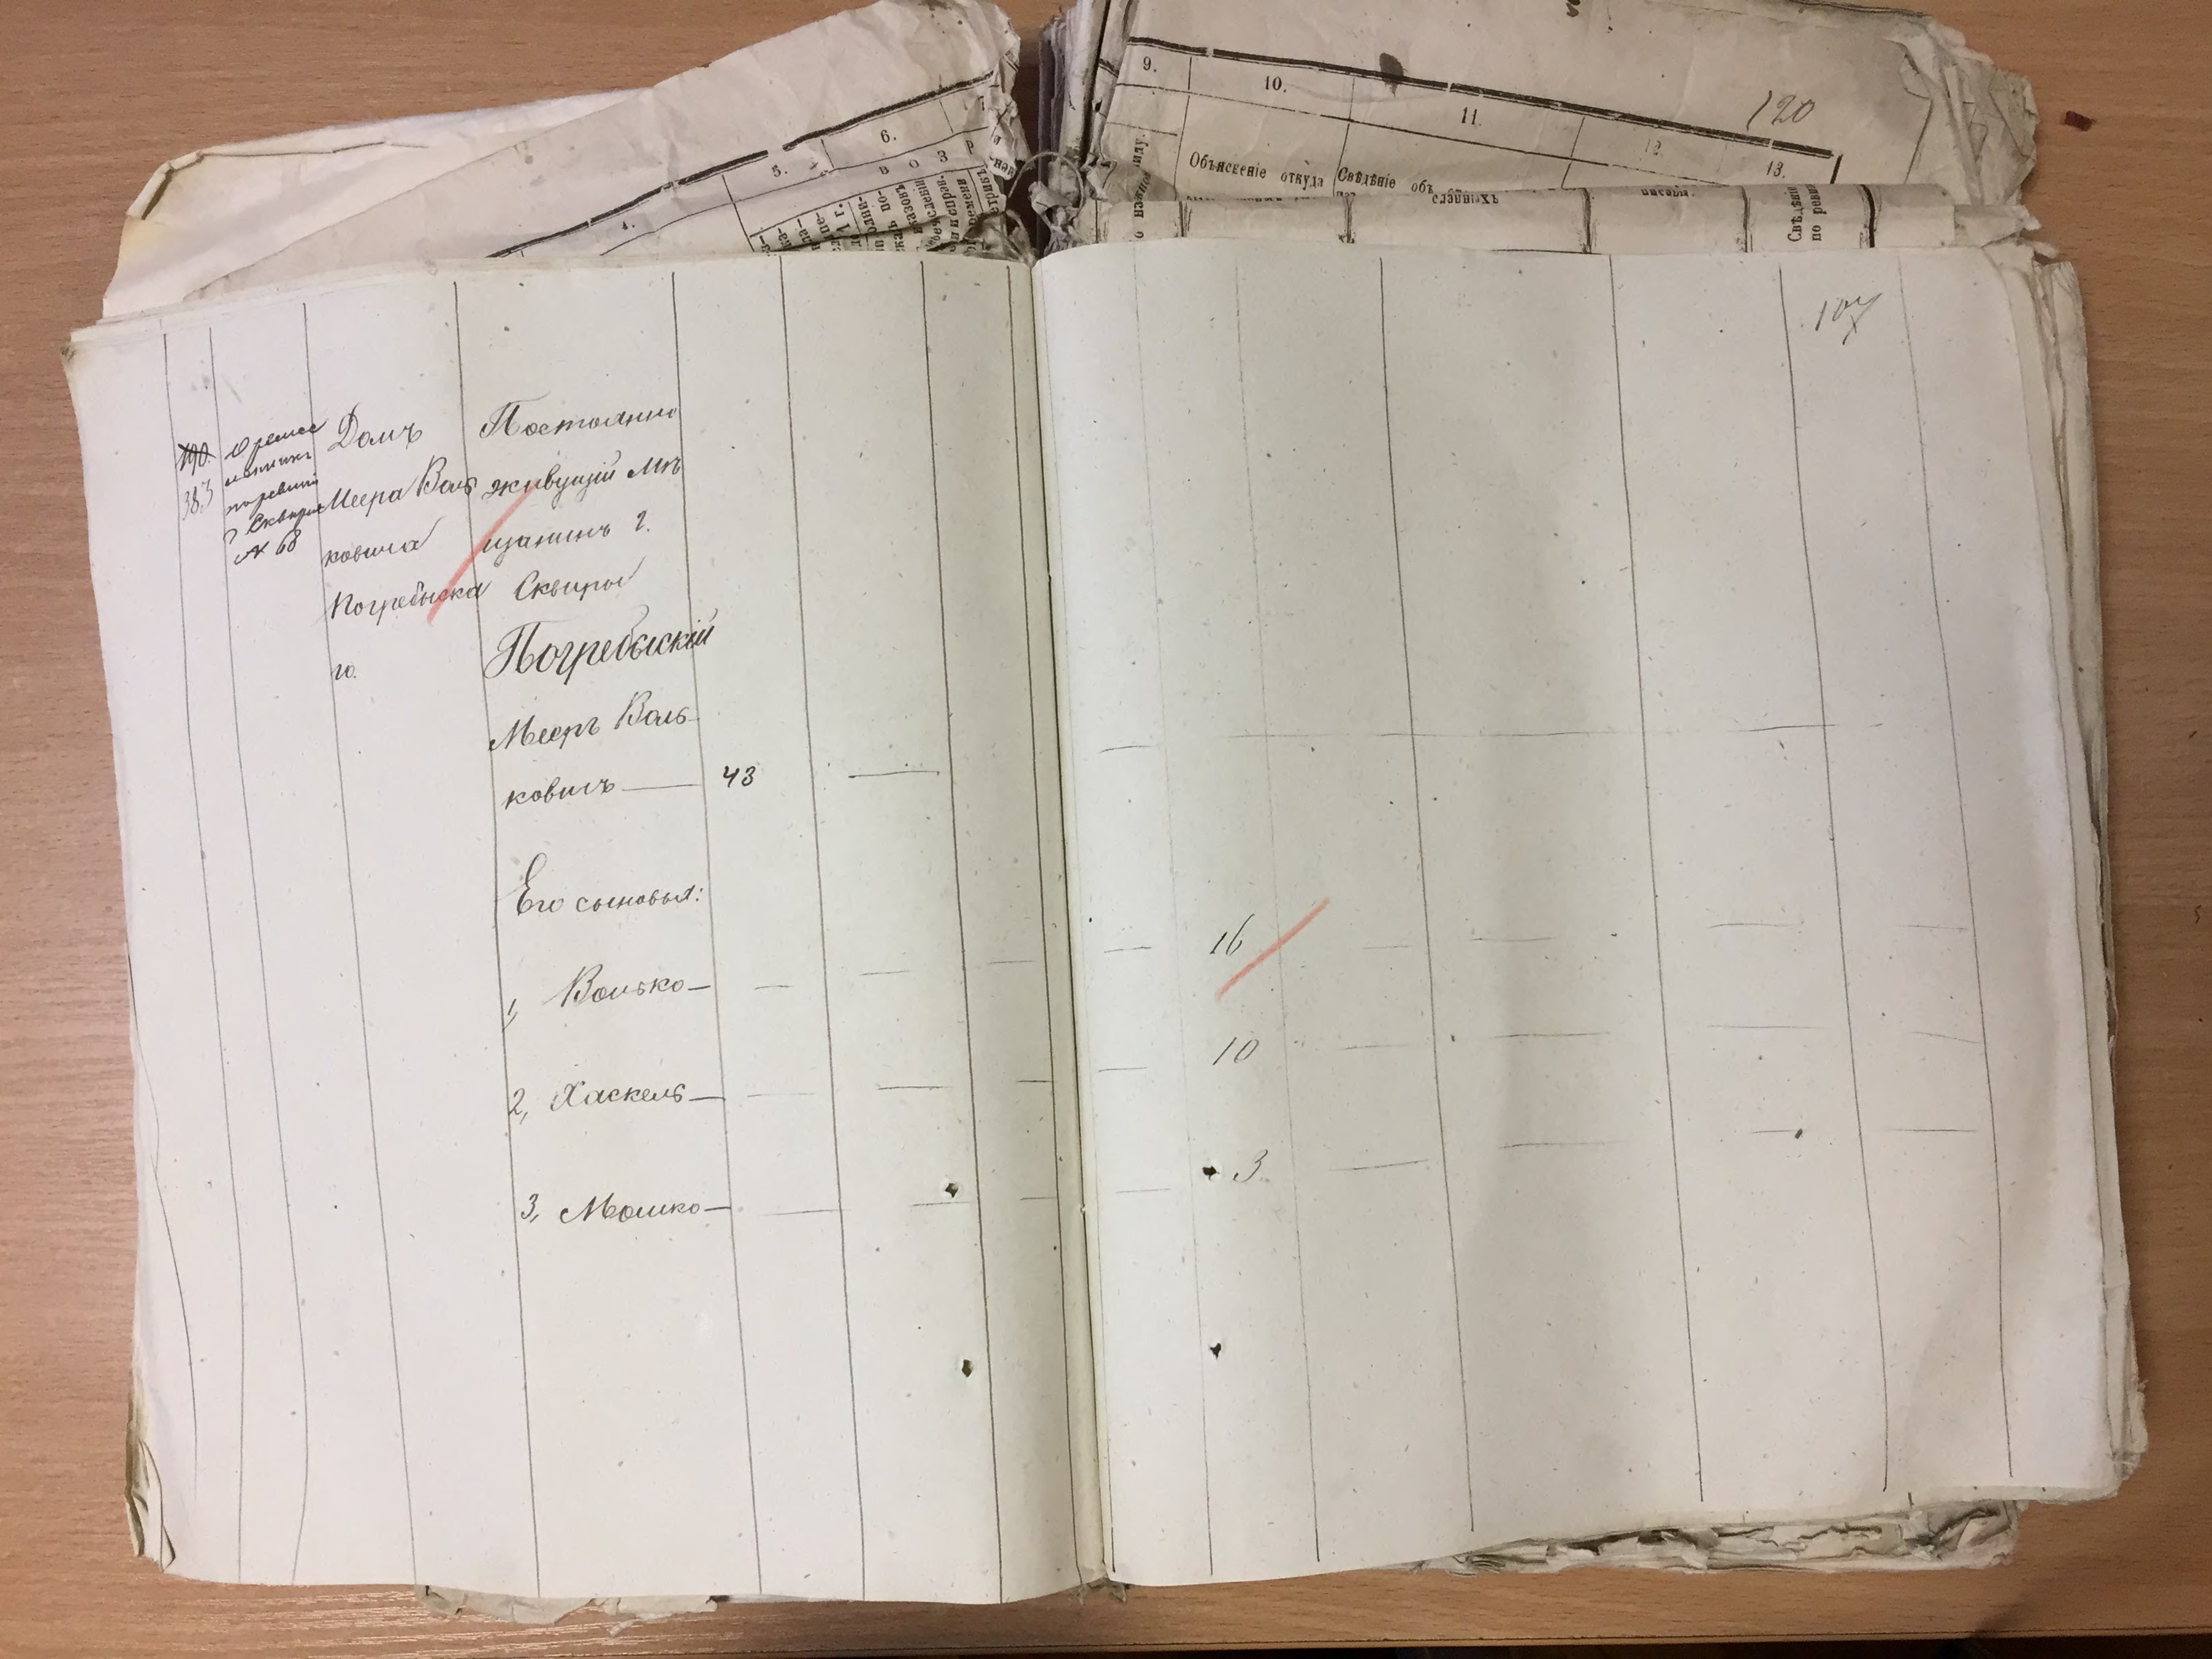 4.
5.
6.
9.
10.
11.
12.
13.
120
Объясненіе откуда
Свѣдѣніе объ
Свѣдѣні
по реви
107
190.
383
ремес
по ревизіи
г Сквиры
№ 68
Домъ
Меера Воль
ковича
Погребыска
го.
Постоянно
живущій Мѣ
щанинъ г.
Сквиры
Погребыскій
Мееръ Воль-
ковичъ — 43 —
Его сыновья:
1, Волько — — — — — 16 — — — —
2, Хаскель — — — — — 10 — — — —
3, Мошко — — — — — 3. — — — —